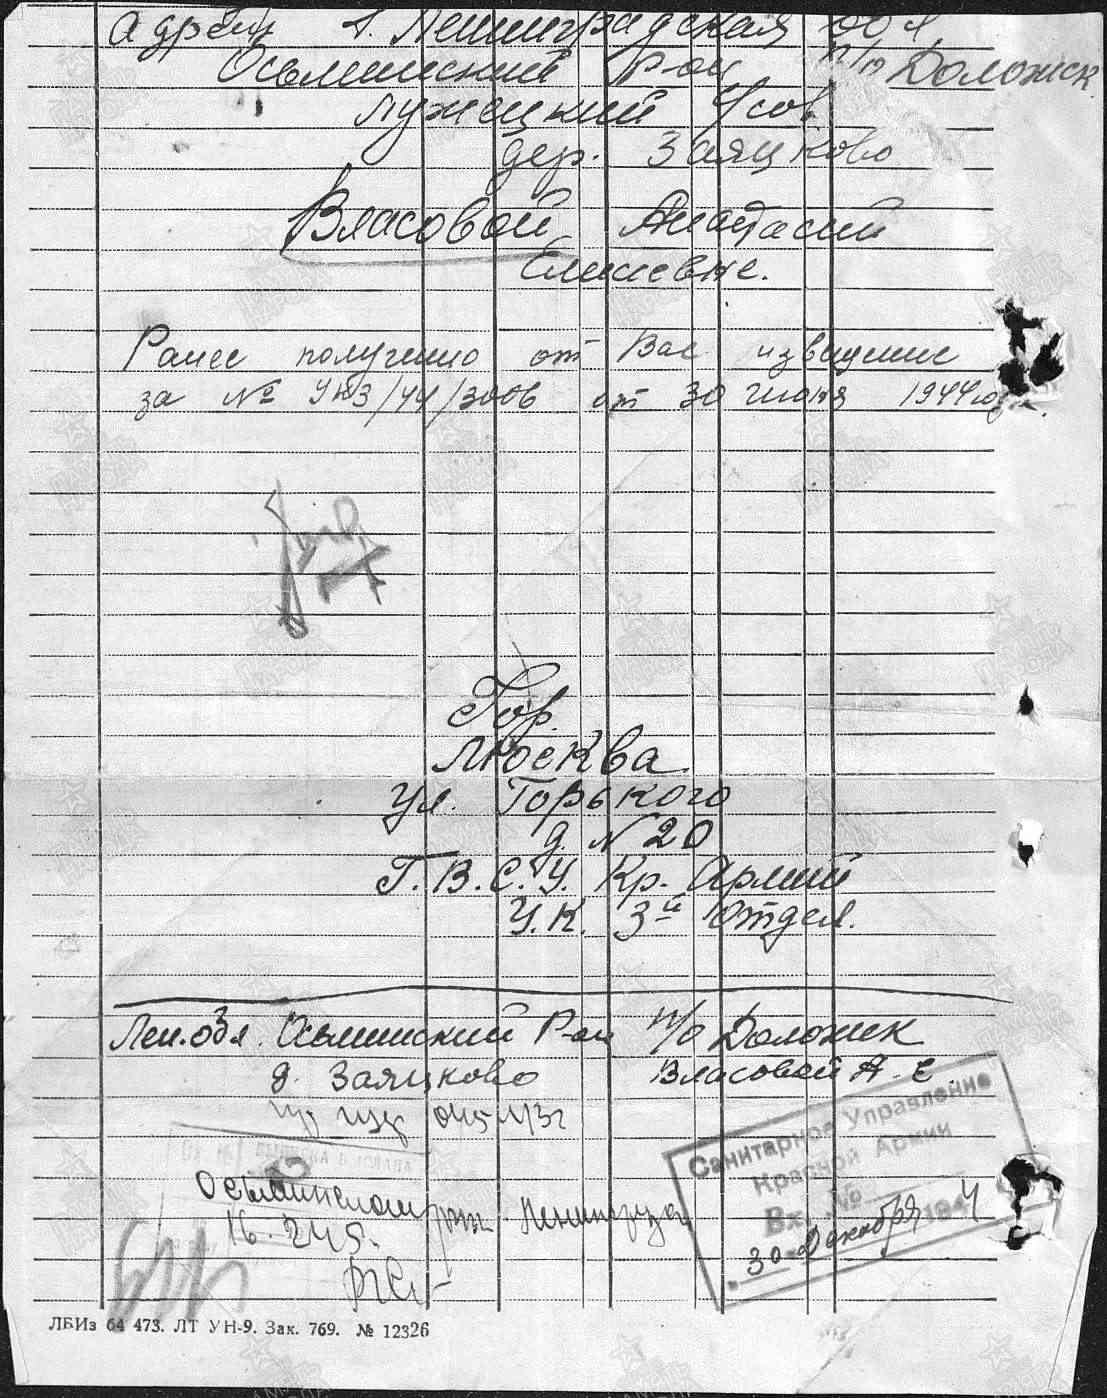 адрес 1. Ленинградская обл,
Осьминский р-он п/о Доложск
Лужецкий с/сов.
дер. Заяцково
Власовой Анастасий
Елисеевне.
Ранее получено от Вас извещение
за № УК3/44/3006 от 30 июня 1944 года.
Гор.
Москва
ул. Горького
д. № 20
Г. В. С. У. Кр. Армий
У.К. 3й Отдел.
Лен. обл. Осьминский Р-он п/о Доложск
д. Заяцково Власовой А. Е
Санитарное Управление
Красной Армии
Вх. №
30 Декабря 1944
16. 2 45.
ЛБИз 64 473. ЛТ УН-9. Зак. 769. № 12326